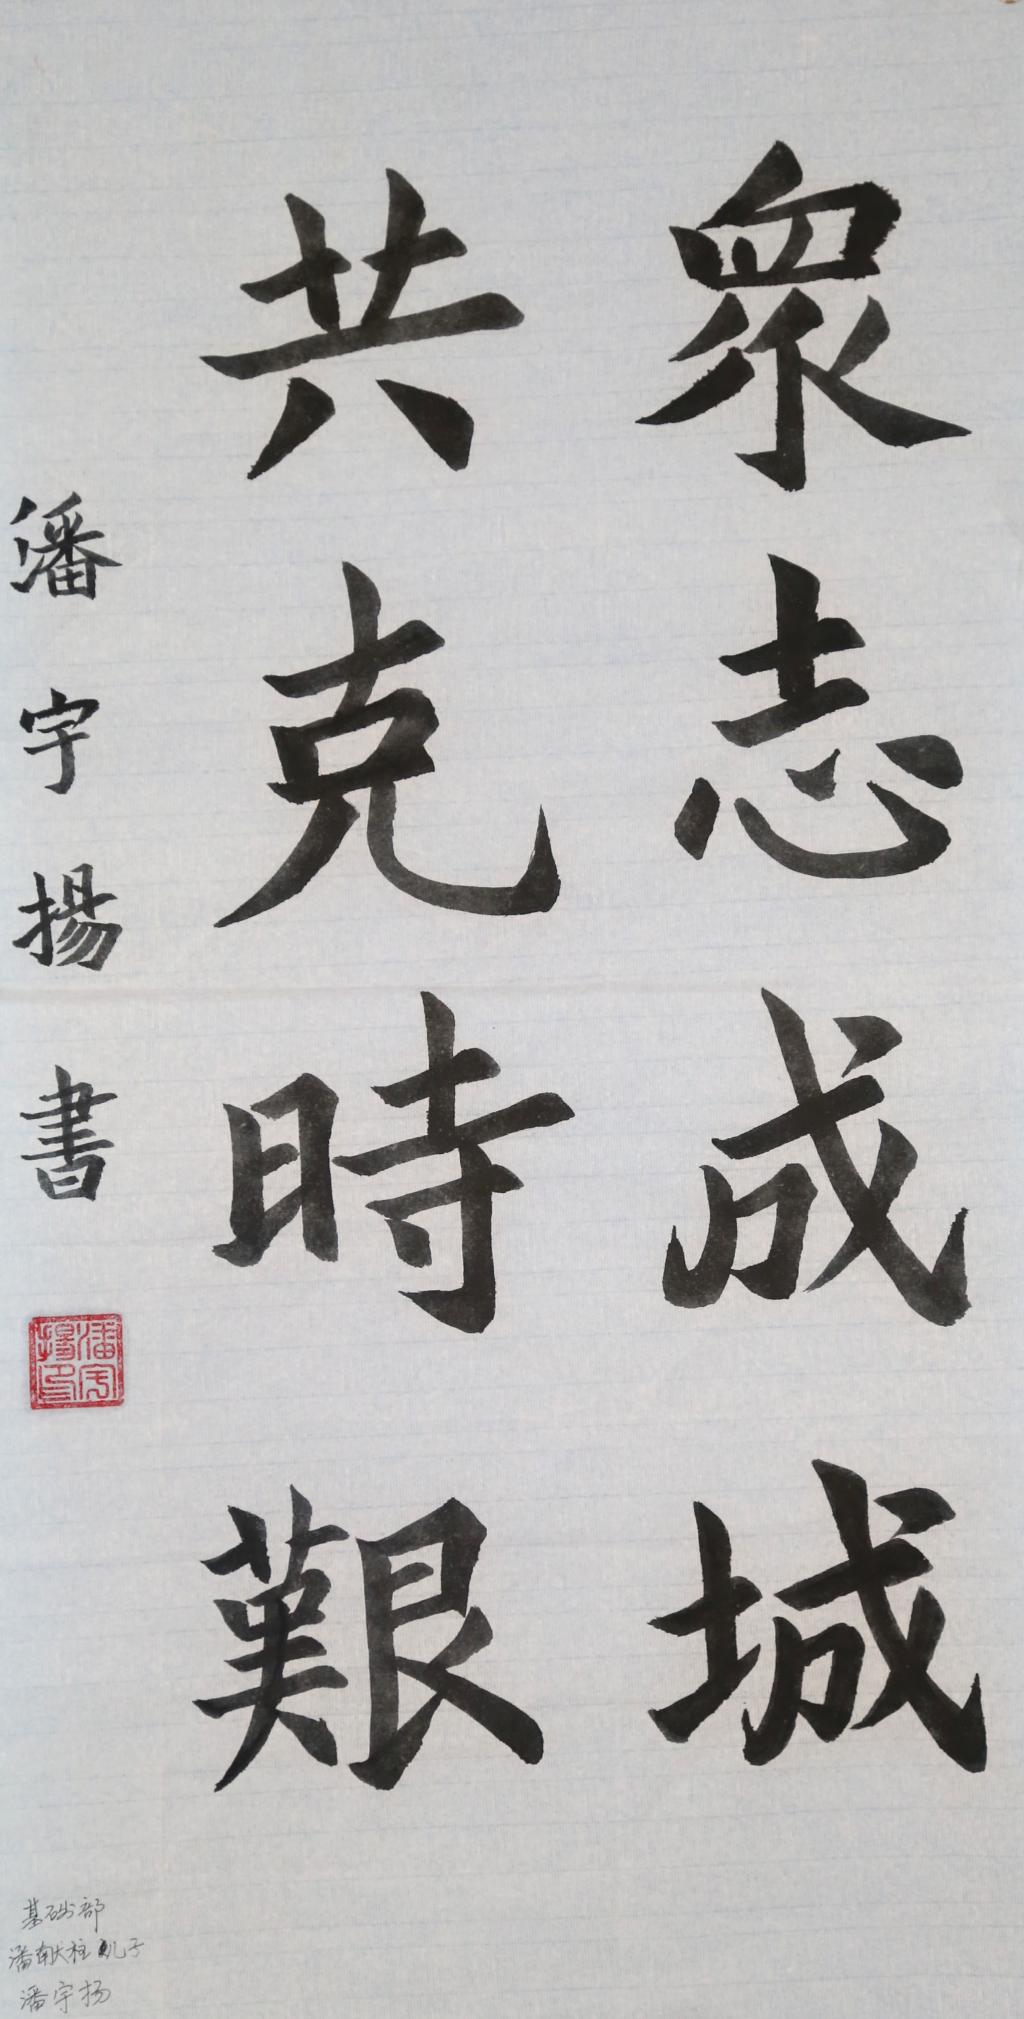 眾志成城
共克時艱
潘宇揚書
潘宇揚印
基础部
潘献柱儿子
潘宇扬